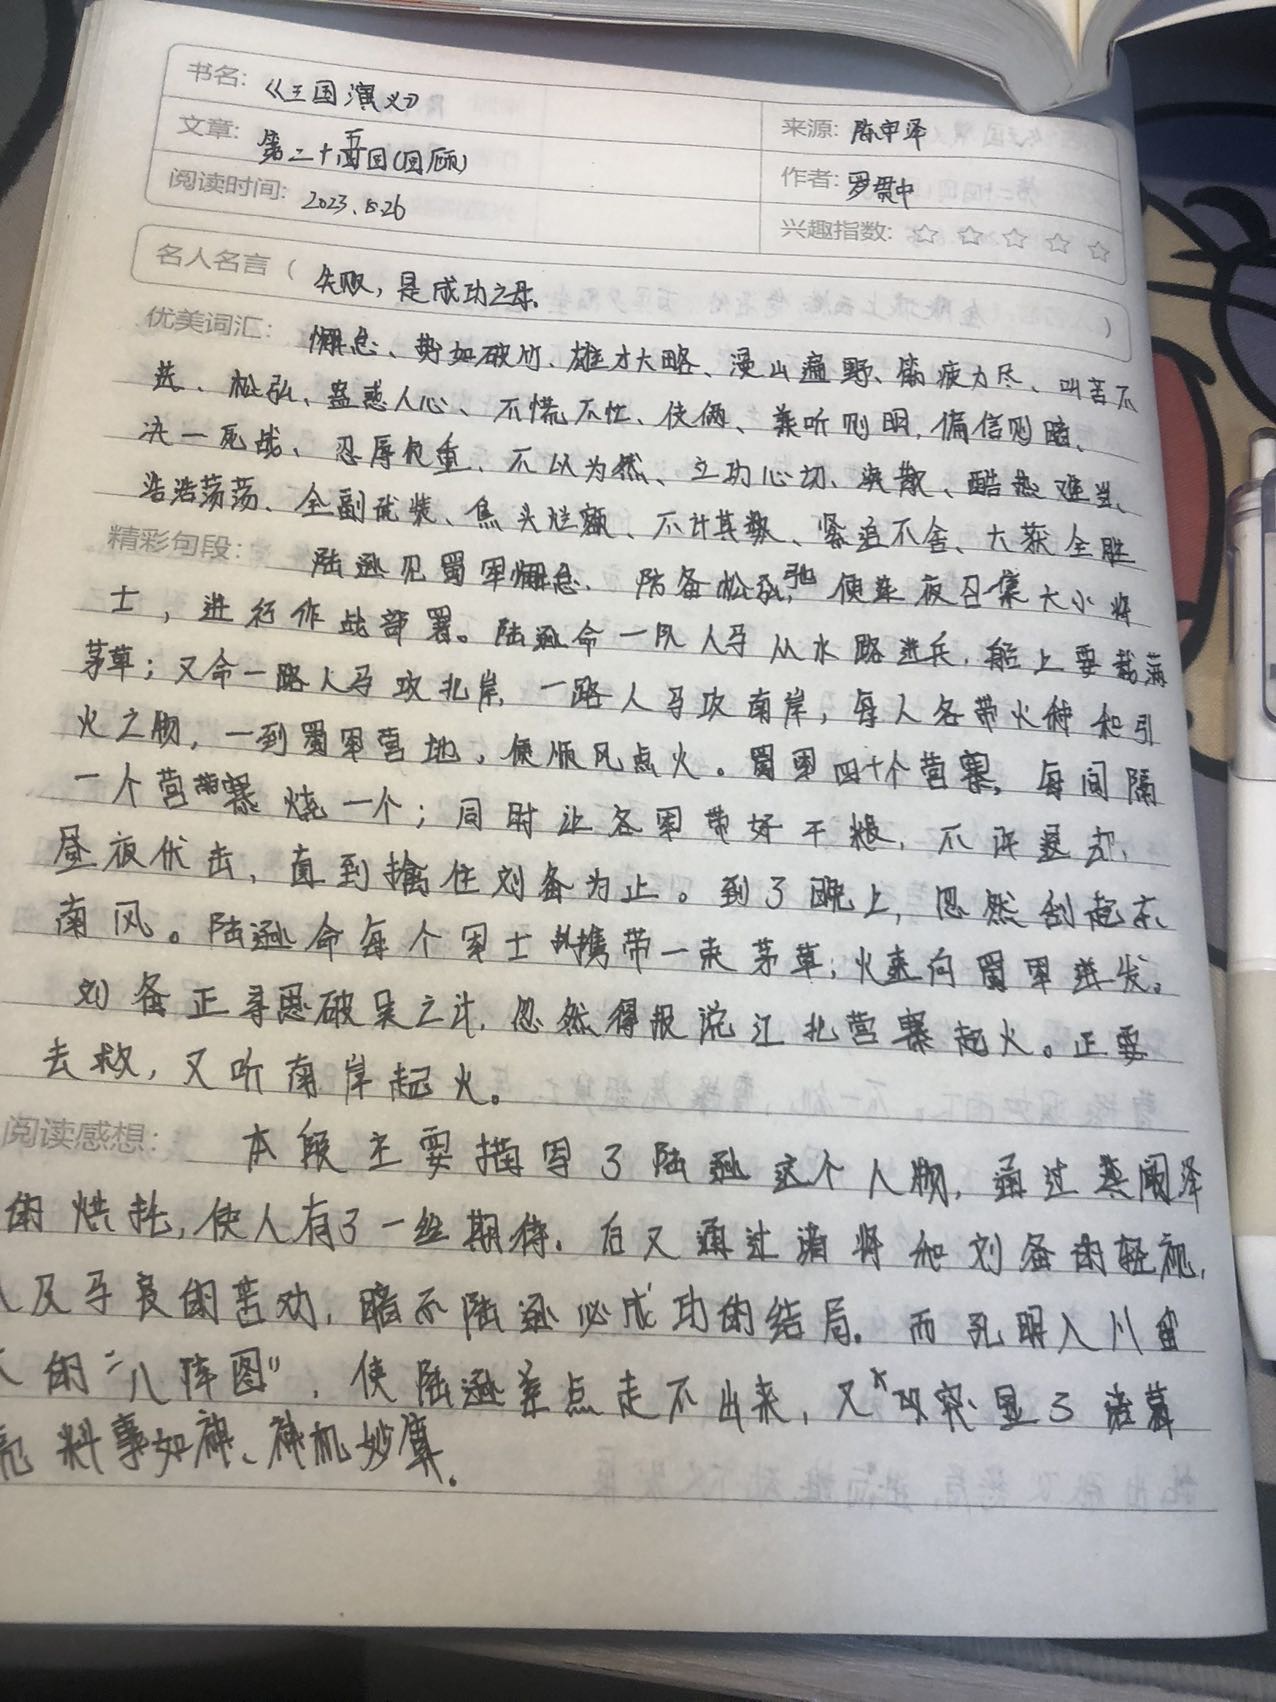 书名:《三国演义》
来源: 陈申泽
文章: 第二十五回(回顾)
作者: 罗贯中
阅读时间: 2023.8.26
兴趣指数: ☆ ☆ ☆ ☆ ☆
名人名言( 失败,是成功之母。 )
优美词汇: 懈怠、势如破竹、雄才大略、漫山遍野、筋疲力尽、叫苦不
迭、松弘、蛊惑人心、不慌不忙、伎俩、兼听则明,偏信则暗、
决一死战、忍辱负重、不以为然、立功心切、涣散、酷热难当、
浩浩荡荡、全副武装、焦头烂额、不计其数、紧追不舍、大获全胜
精彩句段: 陆逊见蜀军懈怠、防备松弛,便连夜召集大小将
士,进行作战部署。陆逊命一队人马从水路进兵,船上要载满
茅草;又命一路人马攻北岸,一路人马攻南岸,每人各带火种和引
火之物,一到蜀军营地,便顺风点火。蜀军四十个营寨,每间隔
一个营寨烧一个;同时让各军带好干粮,不许退却,
昼夜伏击,直到擒住刘备为止。到了晚上,忽然刮起东
南风。陆逊命每个军士携带一束茅草,火速向蜀军进发。
刘备正寻思破吴之计,忽然得报说江北营寨起火。正要
去救,又听南岸起火。
阅读感想: 本段主要描写了陆逊这个人物,通过阚泽
的烘托,使人有了一丝期待。后又通过诸将和刘备的轻视,
以及马良的苦劝,暗示陆逊必成功的结局。而孔明入川留
的“八阵图”,使陆逊差点走不出来,又突显了诸葛
亮料事如神、神机妙算。